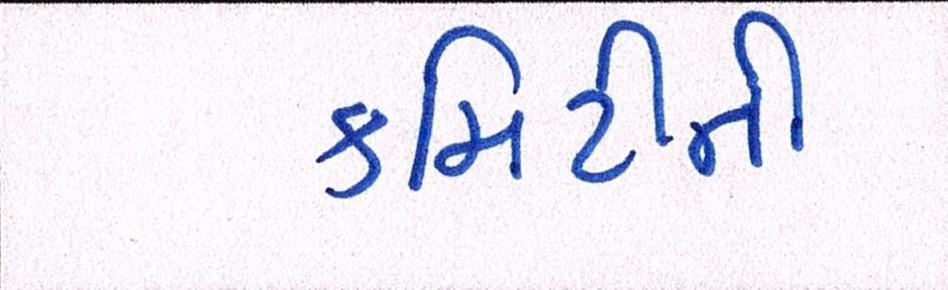 કમિટીની